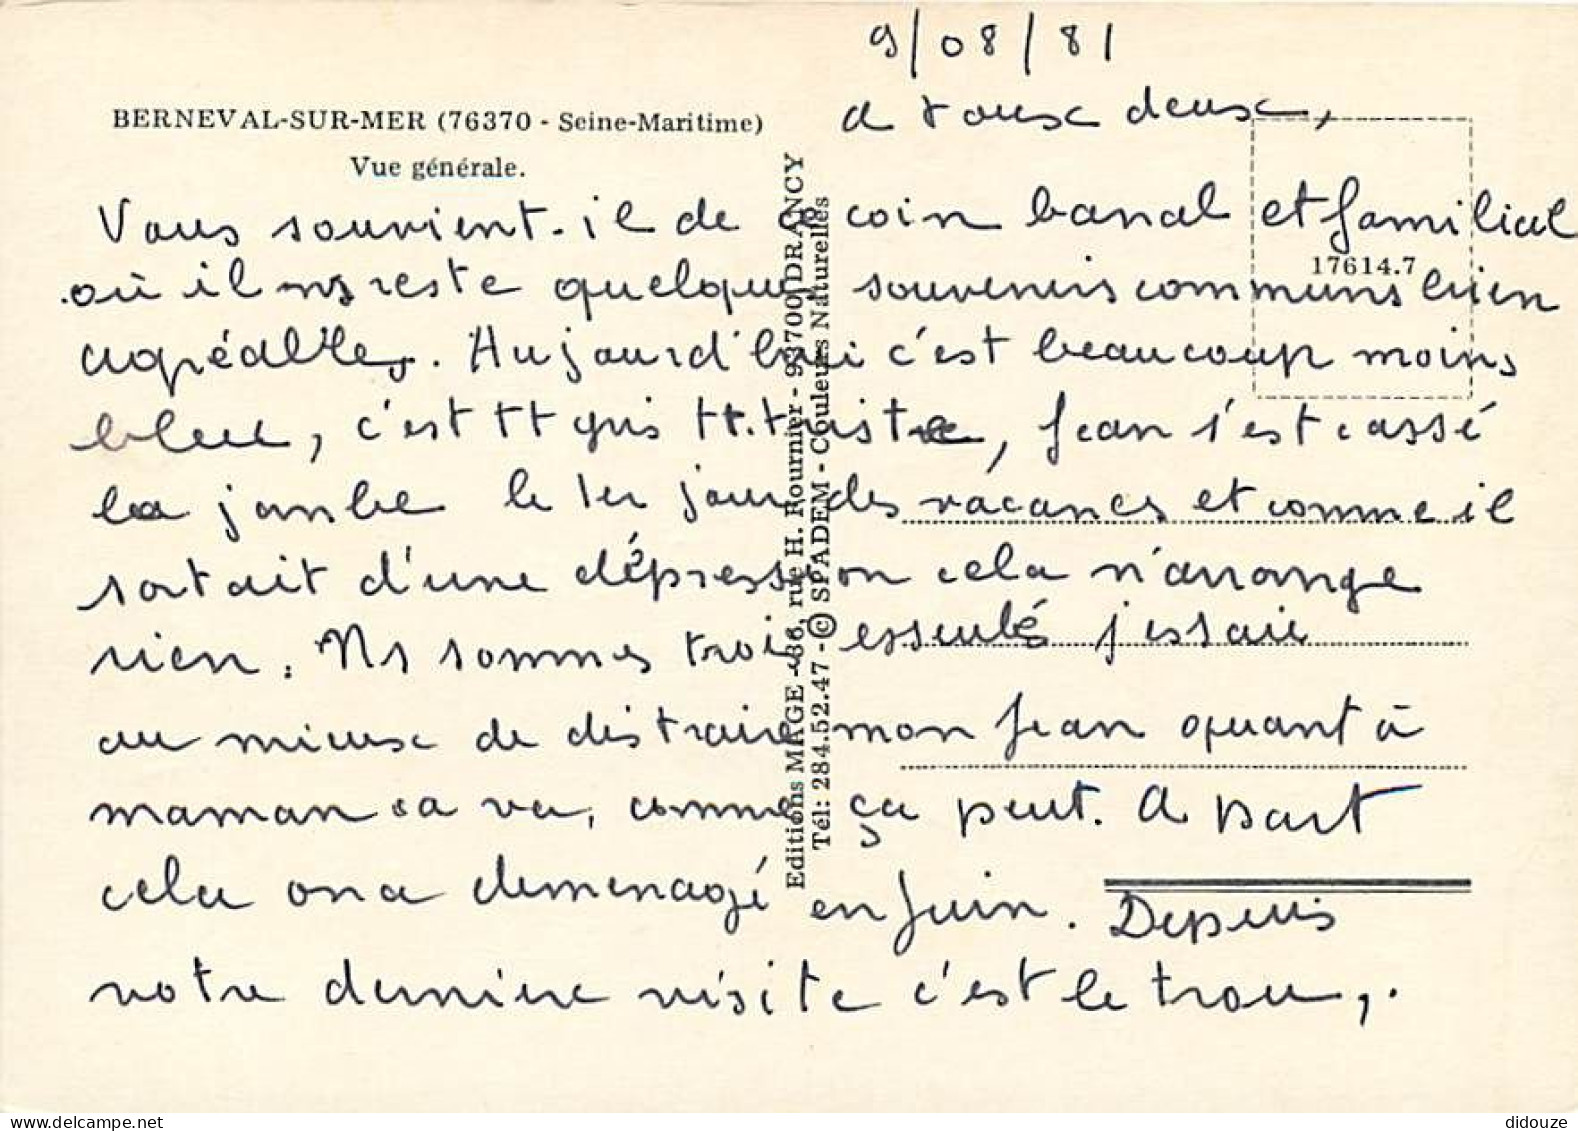 9/08/81
a toux deux,
BERNEVAL-SUR-MER (76370 - Seine-Maritime)
Vue générale.
17614.7
Vous souvient-il de ce coin banal et familial
où il ns reste quelques souvenirs communs bien
agréables. Aujourd'hui c'est beaucoup moins
bleu, c'est tt gris tt triste, Jean s'est cassé
la jambe le 1er jour des vacances et comme il
sortait d'une dépression cela n'arrange
rien. Ns sommes trois esseulés j'essaie
au mieux de distraire mon Jean quant à
maman ça va, comme ça peut. A part
cela on a demenagé en Juin. Depuis
votre derniere visite c'est le trou,.
Editions MAGE - 36, rue H. Rournier - 93700 DRANCY
Tél: 284.52.47 - © SPADEM - Couleurs Naturelles
www.delcampe.net
didouze